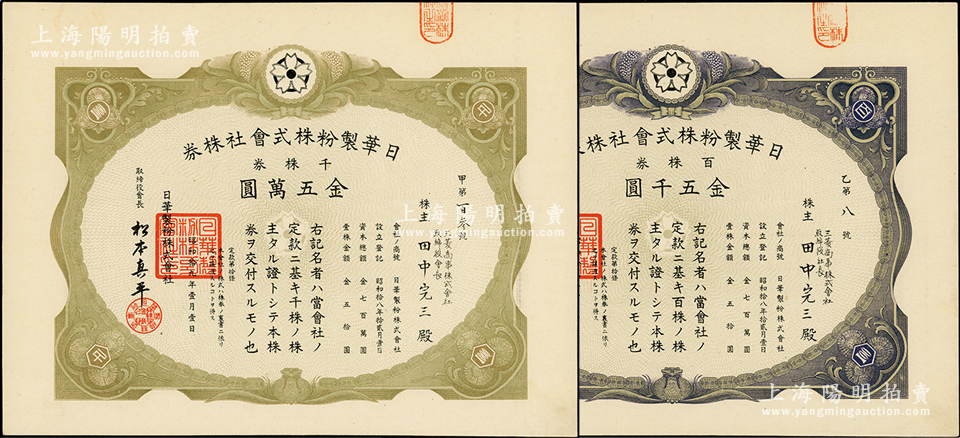 上海陽明拍賣
www.yangmingauction.com
日華製粉株式會社株券
千株券
金五萬圓
株主
田中完三殿
會社ノ商號 日華製粉株式會社
設立登記 昭和拾八年拾貳月壹日
資本總額 金七百萬圓
壹株金額 金五拾圓
右記名者ハ當會社ノ
定款ニ基キ千株ノ株
主タル證トシテ本株
券ヲ交付スルモノ也
定款第拾條
昭和拾九年壹月壹日
日華製粉株式會社
取締役會長 松本真平
上海陽明拍賣
www.yangmingauction.com
日華製粉株式會社株
百株券
金五千圓
乙第八號
三菱商事株式會社
取締役社長
株主
田中完三殿
會社ノ商號 日華製粉株式會社
設立登記 昭和拾八年拾貳月壹日
資本總額 金七百萬圓
壹株金額 金五拾圓
右記名者ハ當會社ノ
定款ニ基キ百株ノ株
主タル證トシテ本株
券ヲ交付スルモノ也
定款第拾條
上海陽明拍賣
www.yangmingauction.com